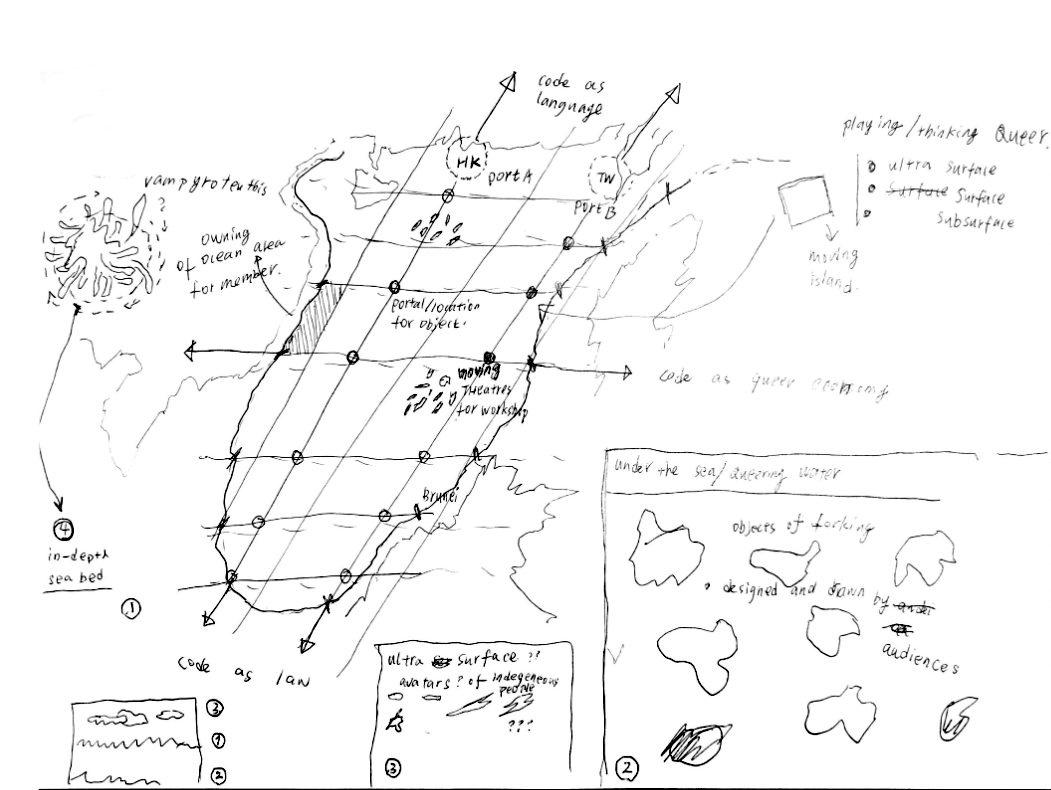 code as
language
HK
port A
TW
port B
playing/thinking Queer
ultra surface
surface
subsurface
moving
island.
vampyroteuthis
?
owning
of ocean area
for member.
portal/location
for object.
code as queer economy
moving
theatres
for workshop
Brunei
4
in-depth
sea bed
1
code as law
3
1
2
ultra surface ??
avatars? of indegeneous
people
???
3
under the sea/queering water
objects of forking
designed and drawn by
audiences
2